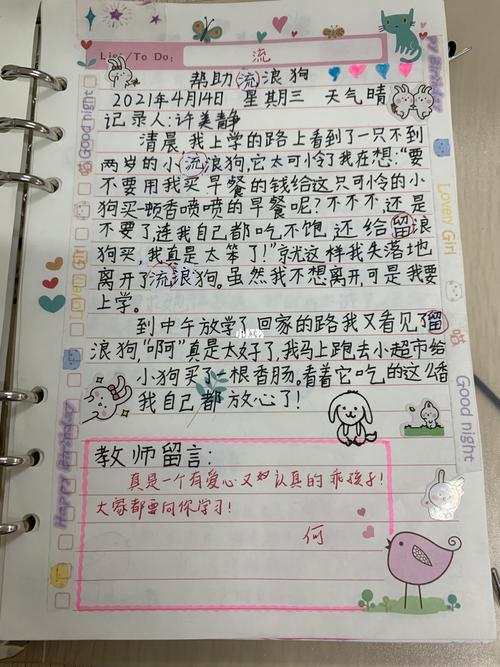 List/To Do:
流
帮助流浪狗
2021年4月14日 星期三 天气晴
记录人:许美静
清晨,我上学的路上看到了一只不到
两岁的小流浪狗,它太可怜了我在想:“要
不要用我买早餐的钱给这只可怜的小
狗买一顿香喷喷的早餐呢?不不不,还是
不要了,连我自己都吃不饱,还给留浪
狗买,我真是太笨了!”就这样我失落地
离开了流浪狗。虽然我不想离开,可是我要
上学。
到中午放学了,回家的路我又看见了留
浪狗,“啊”真是太好了,我马上跑去小超市给
小狗买了一根香肠。看着它吃的这么香
我自己都放心了!
教师留言:
真是一个有爱心又认真的乖孩子!
大家都要向你学习!
何
Good night
Lovely Girl
Happy Birthday
Happy Birthday
Lovely Girl
Good night
小红书